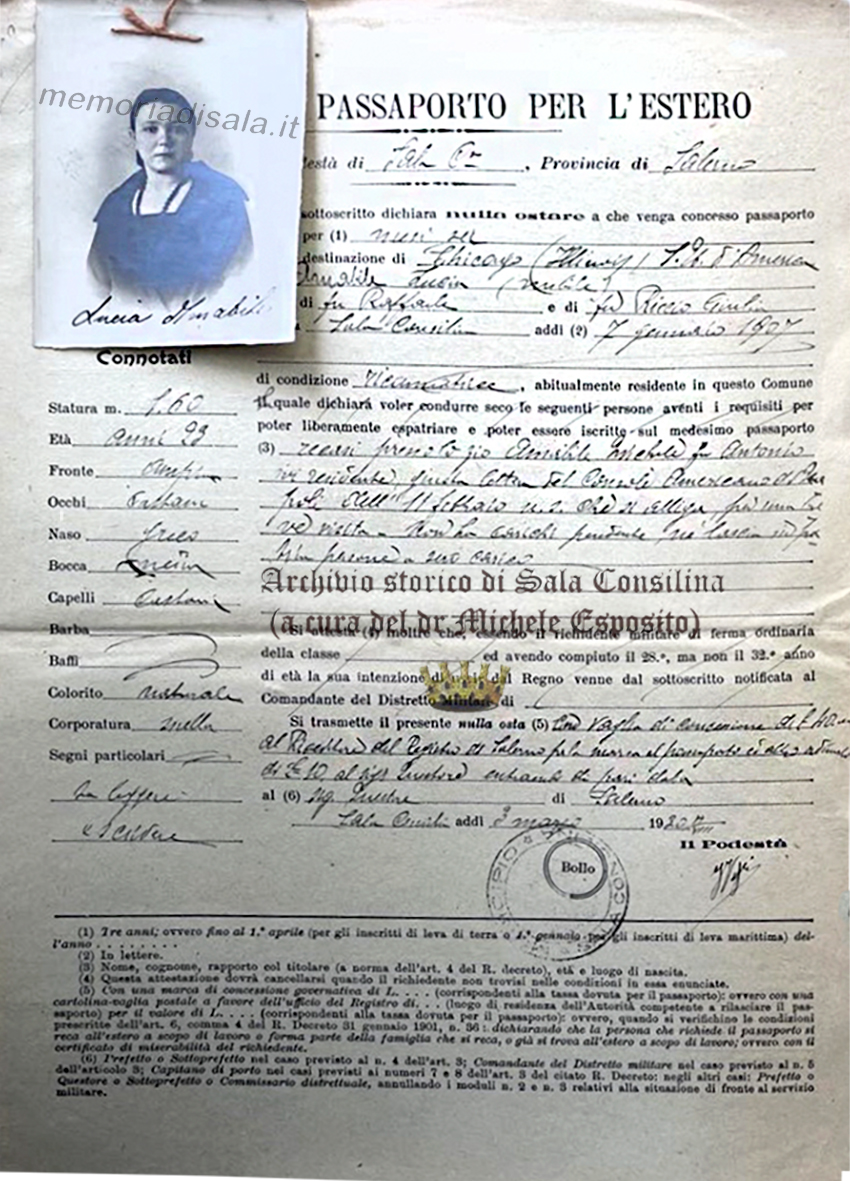 memoriadisala.it
PASSAPORTO PER L'ESTERO
està di Sala C.na, Provincia di Salerno
sottoscritto dichiara nulla ostare a che venga concesso passaporto
per (1) mesi sei
destinazione di Chicago (Illinois) S. U. d'America
Amabile Lucia (nubile)
di fu Raffaele e di fu Riccio Giulia
Sala Consilina addì (2) 7 gennaio 1907
Lucia Amabile
Connotati
di condizione ricamatrice, abitualmente residente in questo Comune
il quale dichiara voler condurre seco le seguenti persone aventi i requisiti per
poter liberamente espatriare e poter essere iscritte sul medesimo passaporto
(3) recasi presso lo zio Amabile Michele fu Antonio
ivi residente, giusta lettera del Console Americano di Na
poli dell' 11 febbraio u.s. che si alliga, per una bre
ve visita. Non ha carichi pendenti, nè lascia in pa
tria persone a suo carico
Statura m. 1.60
Età anni 23
Fronte ampia
Occhi castani
Naso greco
Bocca media
Capelli castani
Barba
Baffi
Colorito naturale
Corporatura snella
Segni particolari
sa leggere
e scrivere
Archivio storico di Sala Consilina
(a cura del dr. Michele Esposito)
Si attesta (4) inoltre che, essendo il richiedente militare di ferma ordinaria
della classe ed avendo compiuto il 28.º, ma non il 32.º anno
di età la sua intenzione di uscire dal Regno venne dal sottoscritto notificata al
Comandante del Distretto Militare di
Si trasmette il presente nulla osta (5) con vaglia di concessione di £
al Ricevitore del Registro di Salerno per la marca al passaporto ed altro
di £ 10 al sig. Questore entrambi di pari data
al (6) Sig. Questore di Salerno
Sala Consilina addì 3 marzo 1930
Il Podestà
Bollo
(1) Tre anni; ovvero fino al 1.º aprile (per gli inscritti di leva di terra o 1.º gennaio per gli inscritti di leva marittima) del-
l'anno . . . . . . . .
(2) In lettere.
(3) Nome, cognome, rapporto col titolare (a norma dell'art. 4 del R. decreto), età e luogo di nascita.
(4) Questa attestazione dovrà cancellarsi quando il richiedente non trovisi nelle condizioni in essa enunciate.
(5) Con una marca di concessione governativa di L. . . . (corrispondenti alla tassa dovuta per il passaporto): ovvero con una
cartolina-vaglia postale a favore dell'ufficio del Registro di. . . (luogo di residenza dell'Autorità competente a rilasciare il pas-
saporto) per il valore di L. . . . (corrispondenti alla tassa dovuta per il passaporto): ovvero, quando si verifichino le condizioni
prescritte dell'art. 6, comma 4 del R. Decreto 31 gennaio 1901, n. 36: dichiarando che la persona che richiede il passaporto si
reca all'estero a scopo di lavoro o forma parte della famiglia che si reca, o già si trova all'estero a scopo di lavoro; ovvero con il
certificato di miserabilità del richiedente.
(6) Prefetto o Sottoprefetto nel caso previsto al n. 4 dell'art. 3; Comandante del Distretto militare nel caso previsto al n. 5
dell'articolo 3; Capitano di porto nei casi previsti ai numeri 7 e 8 dell'art. 3 del citato R. Decreto: negli altri casi: Prefetto o
Questore o Sottoprefetto o Commissario distrettuale, annullando i moduli n. 2 e n. 3 relativi alla situazione di fronte al servizio
militare.